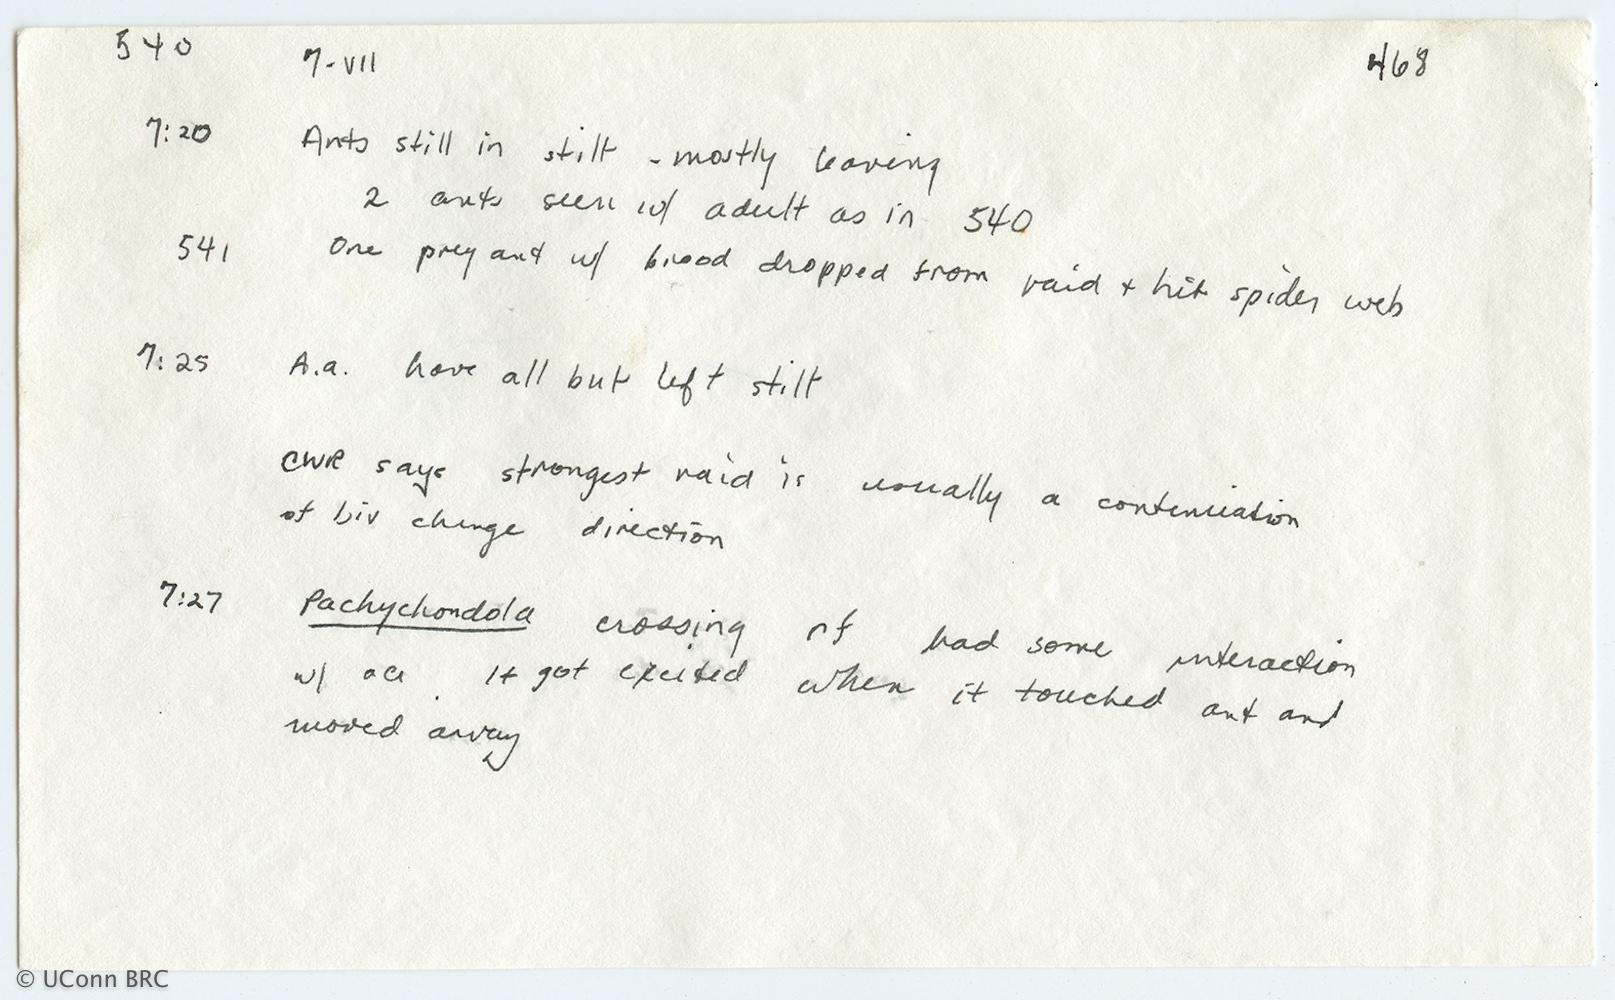 540 7-VII 468
7:20 Ants still in stilt - mostly leaving
2 ants seen w/ adult as in 540
541 One prey ant w/ brood dropped from raid + hit spider web
7:25 A.a. have all but left stilt
CWR says strongest raid is usually a contenuation
of biv change direction
7:27 Pachychondola crossing rf had some interaction
w/ aa. It got excited when it touched ant and
moved away
© UConn BRC